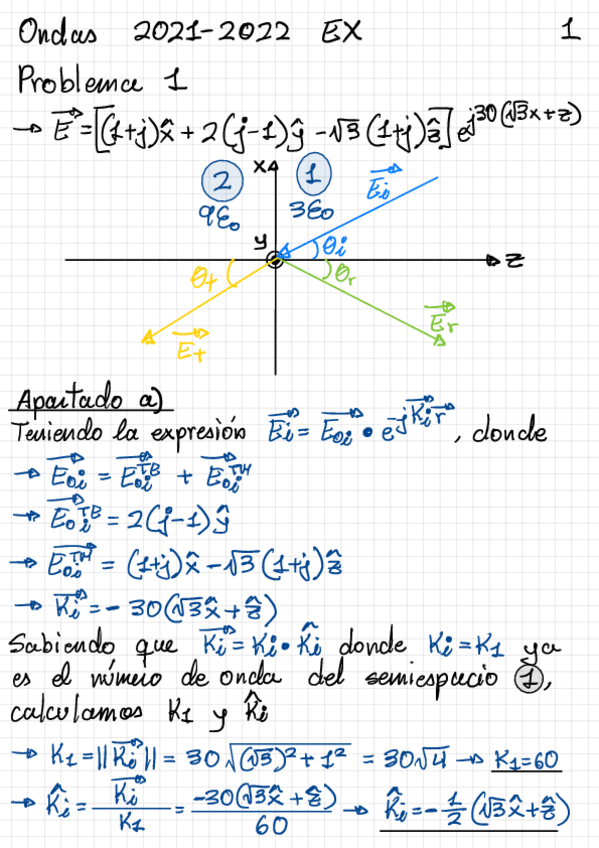 Ondas 2021-2022 EX 1
Problema 1
→ E⃗ = [(1+j)x̂ + 2(j-1)ŷ - √3(1+j)ẑ] e^{j30(√3x+z)}
2 x 1 E⃗i
9ε₀ 3ε₀
y θi
z
θt θr
E⃗t E⃗r
Apartado a)
Teniendo la expresión E⃗i = E⃗oi • e^{-jK⃗i r⃗}, donde
→ E⃗oi = E⃗oi^{TE} + E⃗oi^{TM}
→ E⃗oi^{TE} = 2(j-1)ŷ
→ E⃗oi^{TM} = (1+j)x̂ - √3(1+j)ẑ
→ K⃗i = - 30(√3x̂ + ẑ)
Sabiendo que K⃗i = Ki • K̂i donde Ki = K1 ya
es el número de onda del semiespacio 1,
calculamos K1 y K̂i
→ K1 = ||K⃗i|| = 30√((√3)² + 1²) = 30√4 → K1 = 60
→ K̂i = K⃗i / K1 = -30(√3x̂ + ẑ) / 60 → K̂i = - 1/2 (√3x̂ + ẑ)